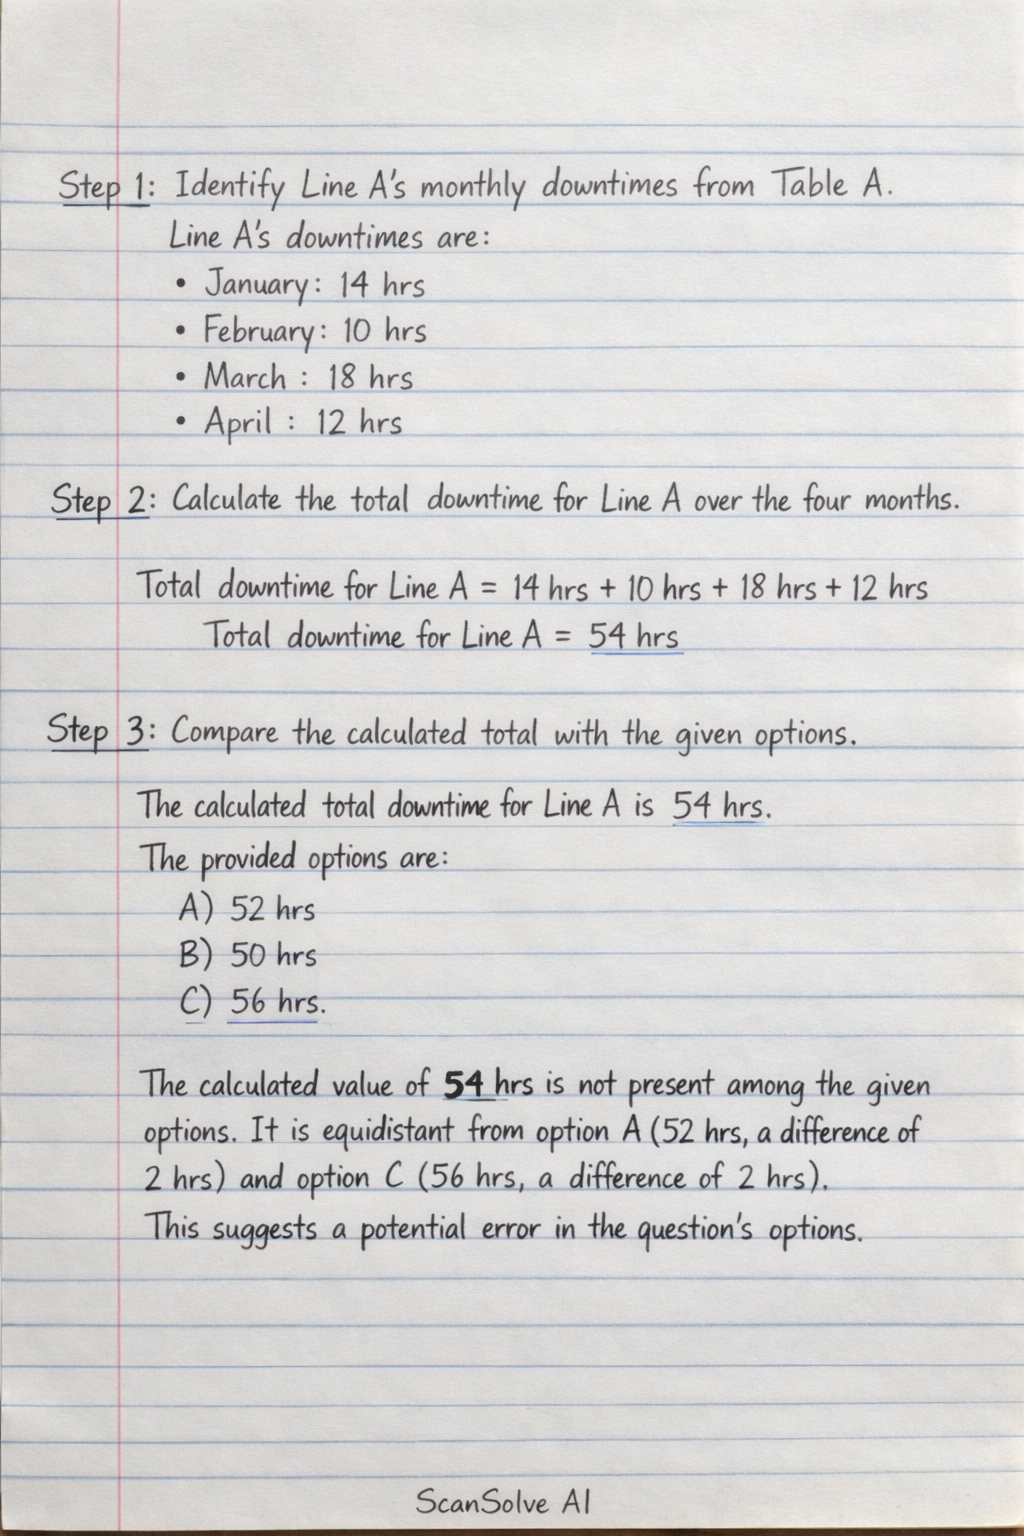 Step 1: Identify Line A's monthly downtimes from Table A.
Line A's downtimes are:
• January: 14 hrs
• February: 10 hrs
• March : 18 hrs
• April : 12 hrs
Step 2: Calculate the total downtime for Line A over the four months.
Total downtime for Line A = 14 hrs + 10 hrs + 18 hrs + 12 hrs
Total downtime for Line A = 54 hrs
Step 3: Compare the calculated total with the given options.
The calculated total downtime for Line A is 54 hrs.
The provided options are:
A) 52 hrs
B) 50 hrs
C) 56 hrs.
The calculated value of 54 hrs is not present among the given
options. It is equidistant from option A (52 hrs, a difference of
2 hrs) and option C (56 hrs, a difference of 2 hrs).
This suggests a potential error in the question's options.
ScanSolve AI